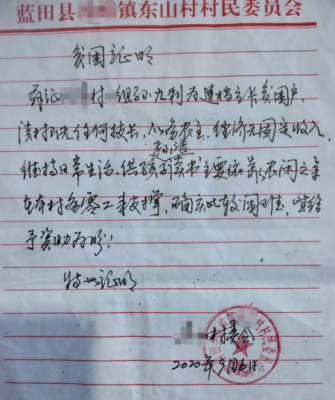 蓝田县 镇东山村村民委员会
贫困证明
兹证 村 组孙九利为建档立卡贫困户
该村民无任何技长,以务农主,经济无固定收入
孙浩
维持日常生活,供孩子读书主要依靠农闲之余
在本村务零工来支撑,确实比较困难,望给
予资助为盼!
特此证明
村委会
2020年9月6日